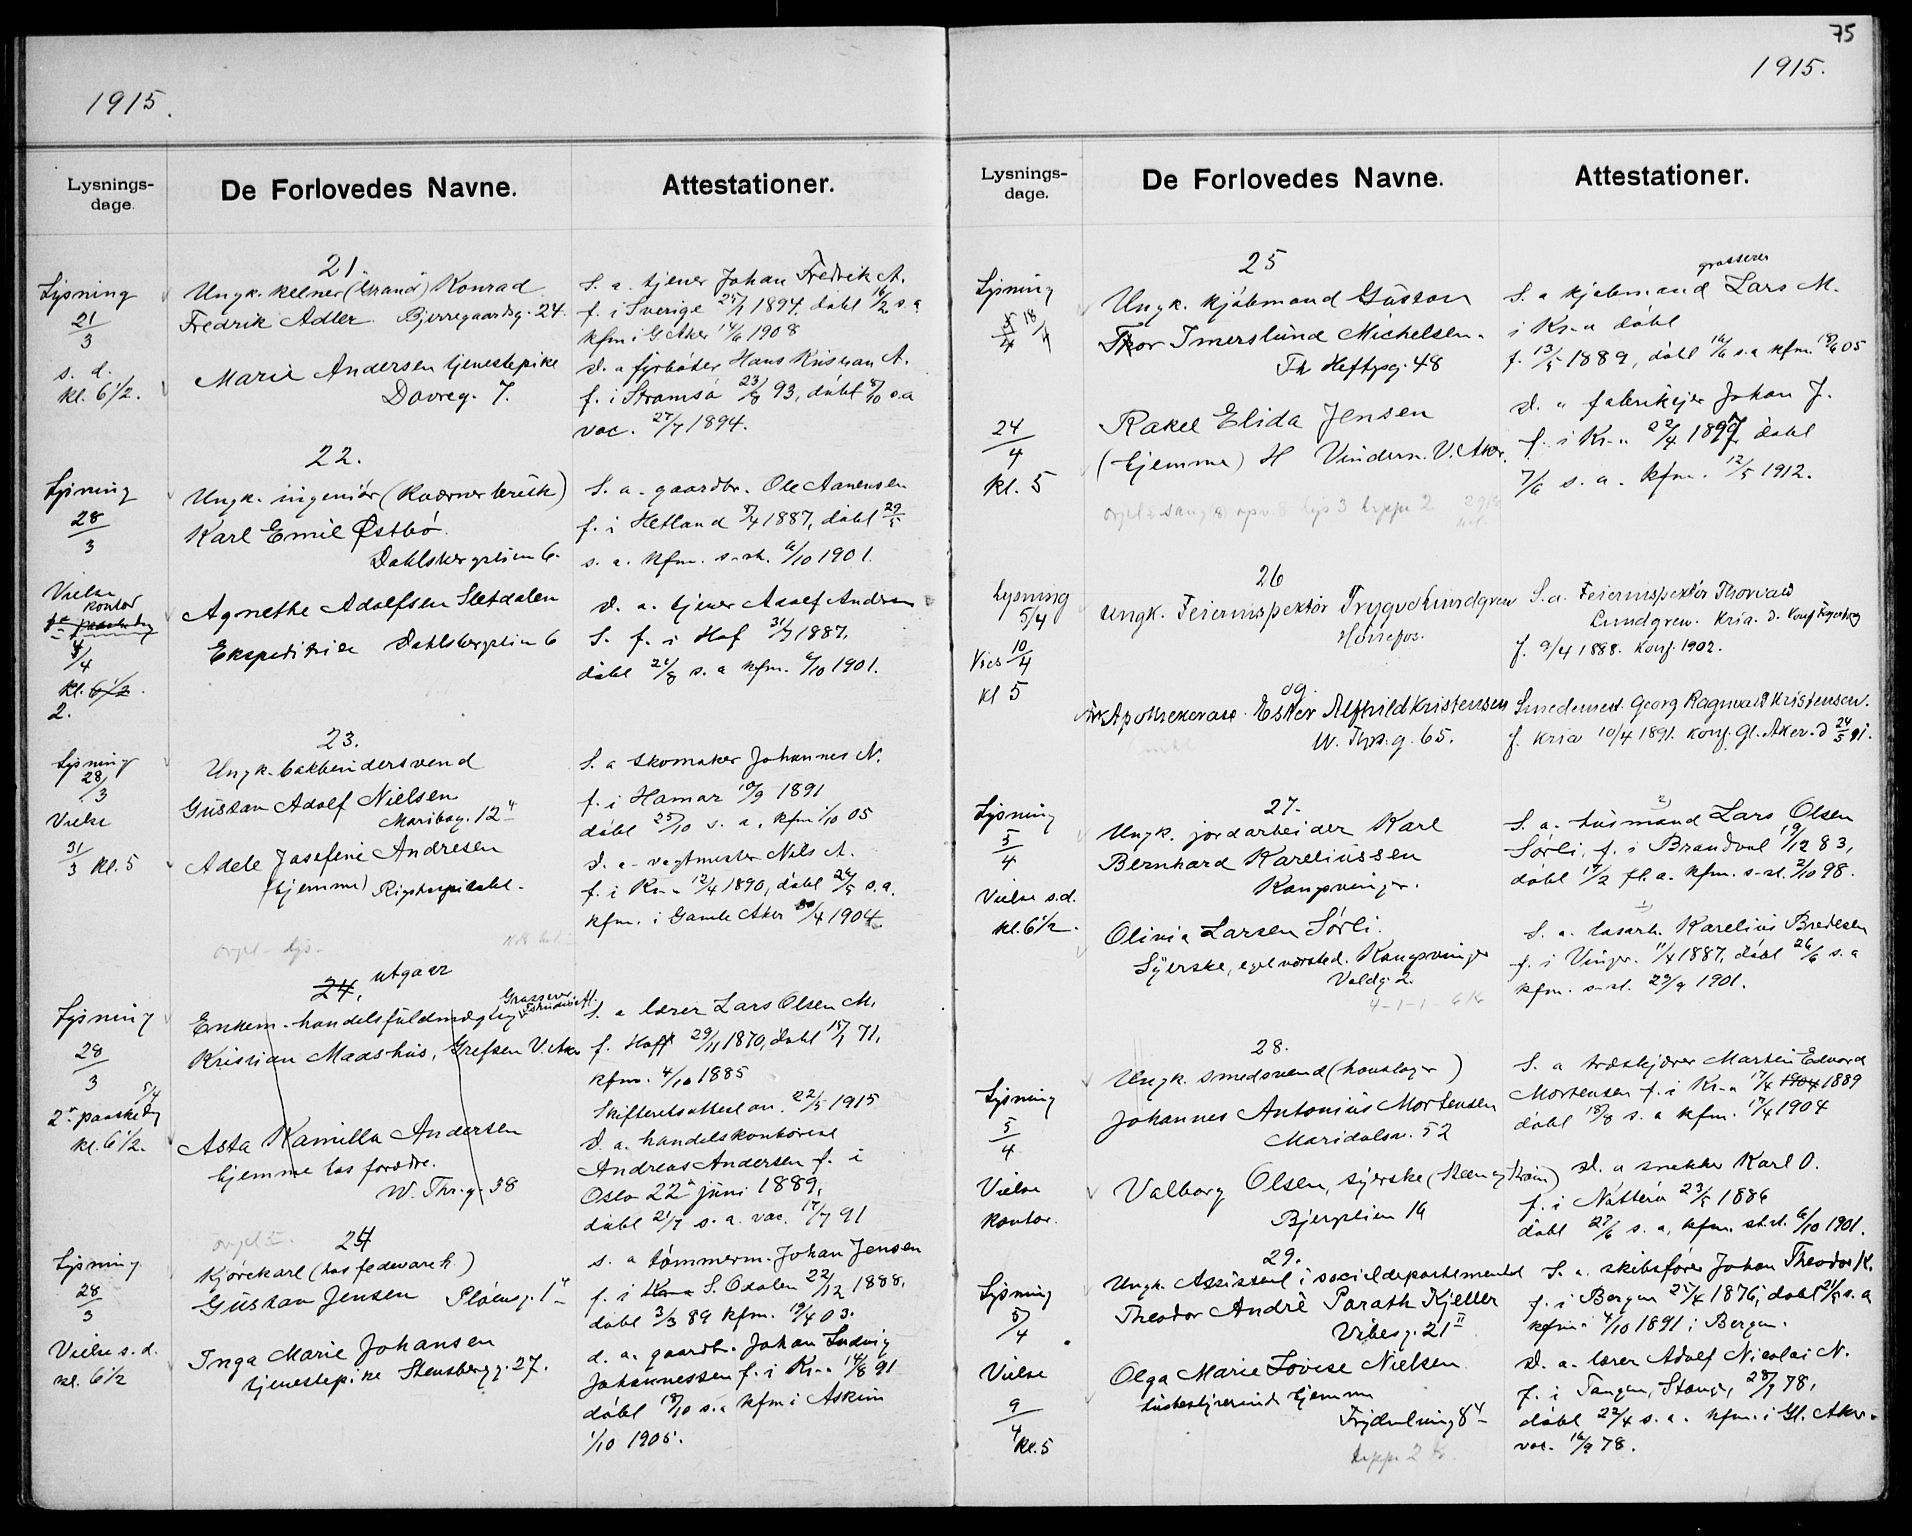 1915.
Lysnings-
dage.
De Forlovedes Navne.
Attestationer.
21
Lysning
21/3
s. d.
kl. 6 1/2.
Ungk. kelner (Grand) Konrad
Fredrik Adler. Bjerregaardsg. 24.
Marie Andersen tjenestepike
Dovreg. 7.
S. a. tjener Johan Fredrik A.
f. i Sverige 25/1 1894, døbt 16/2 s. a
kfm i G Aker 14/6 1908
D. a fyrbøter Hans Kristian A.
f. i Strømsø 23/8 93, døbt 8/10 s. a
vac. 27/7 1894.
22.
Lysning
28/3
Vielse
kontor
/4
kl. 6 1/2.
2.
Ungk. ingeniør (Kværner bruk)
Karl Emil Østbø.
Dahlsbergstien 6.
Agnethe Adolfsen Sletdalen
Ekspeditrice Dahlsbergstien 6
S. a. gaardbr. Ole Aanensen
f. i Hetland 1887, døbt 29/5
s. a. kfm. s-st. 6/10 1901.
D. a. tjener Adolf Andersen
S. f. i Hof 31/7 1887.
døbt 21/8 s. a kfm. 6/10 1901.
23.
Lysning
28/3
Vielse
31/3 kl. 5
Ungk. bokbindersvend
Gustav Adolf Nielsen
Maribog. 12 4
Adele Josefine Andresen
(hjemme) Rigshospitalet.
S. a skomaker Johannes N.
f. i Hamar 10/9 1891
døbt 25/10 s. a. kfm 1/10 05
D. a. vagtmester Nils A.
f. i Kr.a 12/4 1890, døbt 26/5 s. a.
kfm. i Gamle Aker 1904
24, utgaar
Lysning
28/3
5/4
2. paaskedag
kl. 6 1/2.
Enkem. handelsfuldmægtig
Kristian Maashus, Grefsen V. Aker
Asta Kamilla Andersen
hjemme hos forældre.
W. Thr. g. 38
S. a lærer Lars Olsen M.
f. Hoff 29/11 1870, døbt 15/1 71,
kfm. 4/10 1885
Skifteretsattest av 22/5 1915
D. a. handelskontorist
Andreas Andersen f. i
Oslo 22. juni 1889,
døbt 21/7 s. a. vac. 17/7 91
24
Lysning
28/3
Vielse s. d.
kl. 6 1/2
Kjørekarl (hos fedevareh.)
Gustav Jensen Pløensg. 1
Inga Marie Johansen
tjenestepike Stensbergg. 27.
S. a tømmerm. Johan Jensen
f. i S. Odalen 22/12 1888.
døbt 3/3 89 kfm. 19/4 03.
d. a. gaardbr. Johan Ludvig
Johannessen f. i Kr.a 14/8 91
døbt 18/10 s. a kfm i Askim
1/10 1905.
75
1915.
Lysnings-
dage.
De Forlovedes Navne.
Attestationer.
25
Lysning
18/4
24/4
kl. 5
Ungk. kjøbmand Gustav
Thor Imerslund Michelsen.
Th Heftysg. 48
Rakel Elida Jensen
(hjemme) H Vindern. V. Aker.
grosserer
S. a kjøbmand Lars M.
i Kr-a døbt
f. 13/5 1889, døbt 16/6 s. a kfm. 05
D. a fabrikejer Johan J.
f. i Kr.a 22/4 1897 døbt
7/6 s. a. kfm. 12/5 1912.
26
Lysning
5/4
Vies 10/4
kl 5
Ungk. Feierinspektør Trygve Lundgren
og
Apothekerass. Ester Alfhild Kristensen
W. Thr. g. 65.
S. a. Feierinspektør Thorvald
Lundgren. Kria. D.
f. 9/4 1888. Konf. 1902.
Smedemest. Georg Ragnvald Kristensen.
f. Kria 10/4 1891. Konf. Gl. Aker. D 24/5 91.
27.
Lysning
5/4
Vielse s. d.
kl. 6 1/2.
Ungk. jordarbeider Karl
Bernhard Kareliussen
Kongsvinger.
Olivia Larsen Sørli.
Syerske, eget værksted. Kongsvinger
Voldg. 2.
2)
S. a. husmand Lars Olsen
Sørli, f. i Brandval 19/12 83,
døbt 17/2 fl. a. kfm. s-st. 2/10 98.
1)
S. a. løsarb. Karelius Bredesen
f. i Vinger. 11/4 1887, døbt 26/6 s. a
kfm. s-st. 29/9 1901.
28.
Lysning
5/4
Vielse
kontor.
Ungk. smedsvend (hovslager)
Johannes Antonius Mortensen
Maridalsv. 52
Valborg Olsen, syerske
Bjergstien 1a
S. a træskjærer Martin Edvard
Mortensen f. i Kr-a 17/4 1904 1889
døbt 18/8 s. a kfm. 17/4 1904
D. a snekker Karl O.
f. i Nøtterø 23/5 1886
døbt 27/6 s. a, kfm. st. st. 6/10 1901.
29.
Lysning
5/4
Vielse
9/4
kl. 5
Ungk. Assistent i socialdepartementet
Theodor André Parath Kjeller
Vibesg. 21 II
Olga Marie Lovise Nielsen
husbestyrerinde hjemme
S. a. skibsfører Johan Theodor K.
f. i Bergen 25/4 1876, døbt 21/5 s. a
kfm. 4/10 1891 i Bergen.
D. a. lærer Adolf Nicolai N.
f. i Tangen, Stange, 28/1 78,
døbt 22/4 s. a. kfm. i Gl. Aker.
vac. 16/9 78.